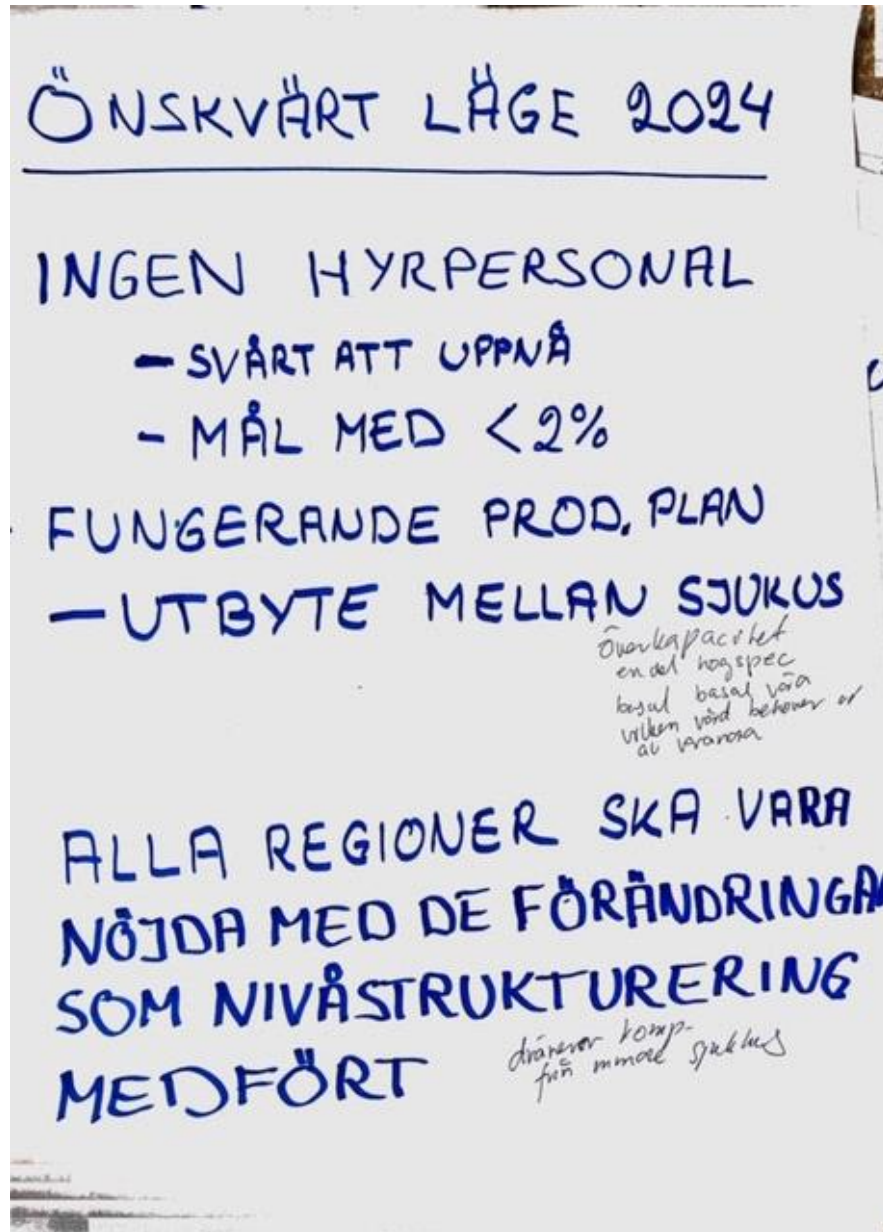 ÖNSKVÄRT LÄGE 2024
INGEN HYRPERSONAL
- SVÅRT ATT UPPNÅ
- MÅL MED <2%
FUNGERANDE PROD. PLAN
- UTBYTE MELLAN SJUKUS
Överkapacitet
en del hogspec
basal basal
vilken vård behöver
av
ALLA REGIONER SKA VARA
NÖJDA MED DE FÖRÄNDRINGA
SOM NIVÅSTRUKTURERING
MEDFÖRT
dränerar komp-
från mindre sjukhus